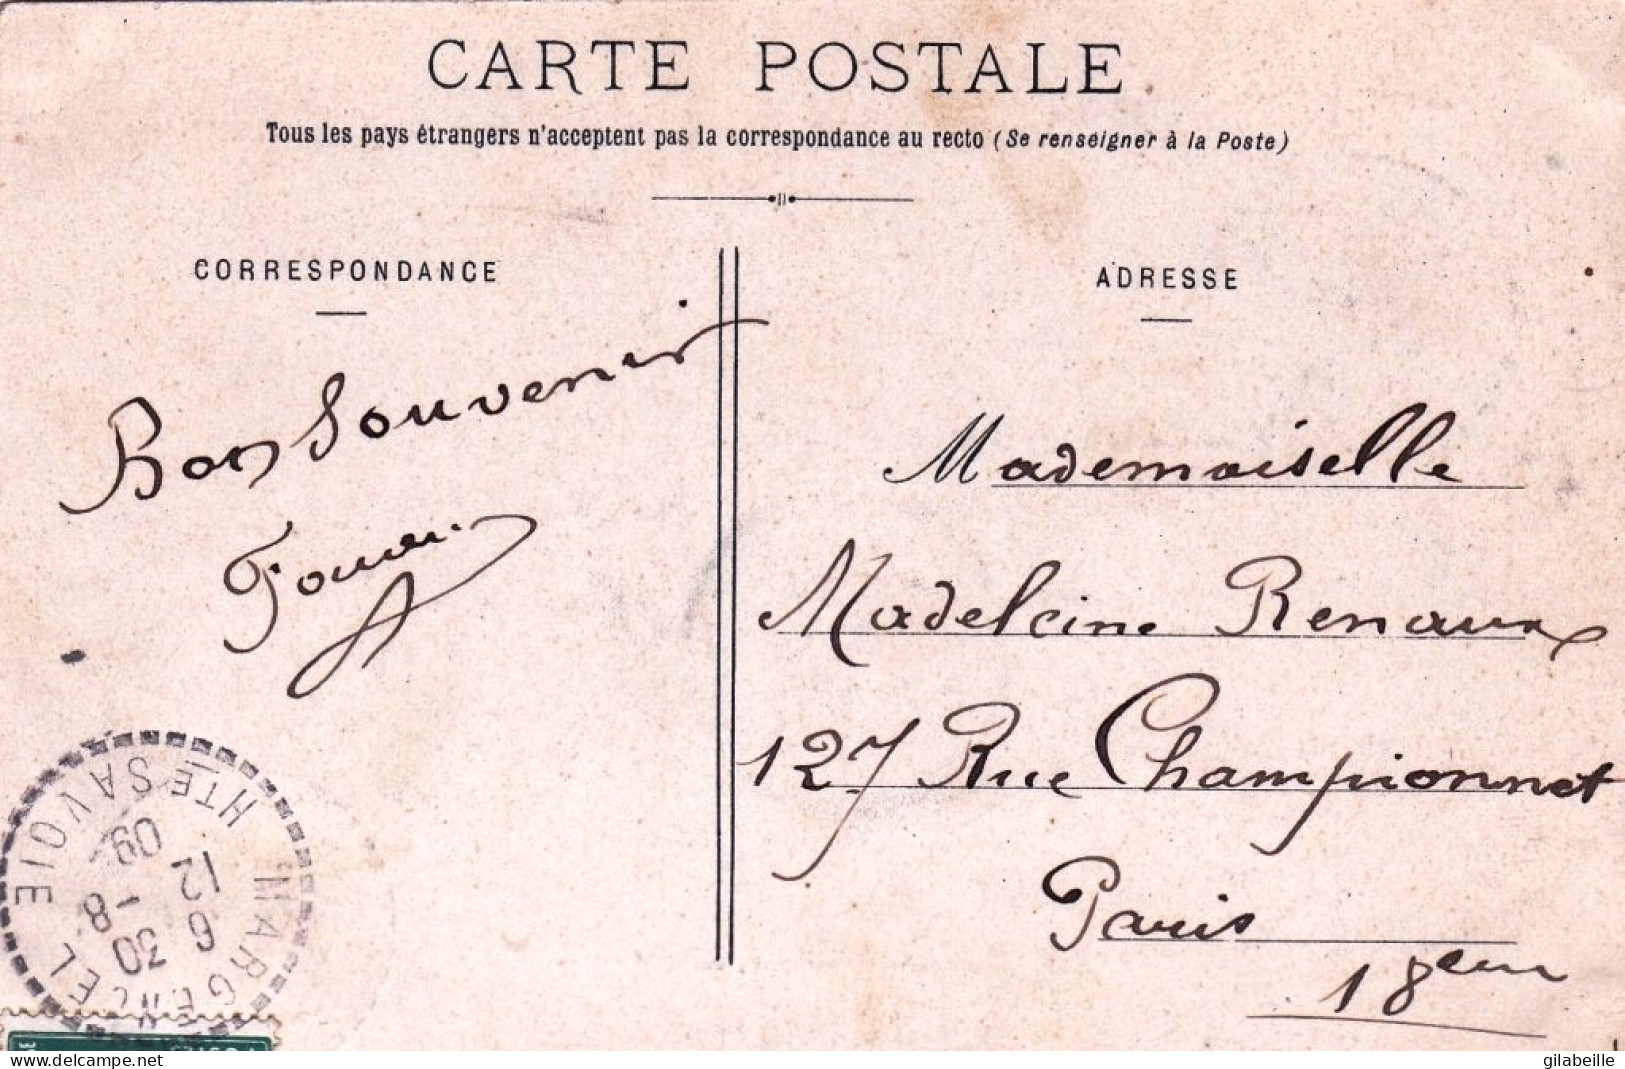 CARTE POSTALE
Tous les pays étrangers n'acceptent pas la correspondance au recto (Se renseigner à la Poste)
CORRESPONDANCE
Bon Souvenir
ADRESSE
Mademoiselle
Madeleine Renaux
127 Rue Championnet
Paris
18em
MARGENCEL
HTE SAVOIE
6 12
30 -8
09
delcampe.net
gilabeille